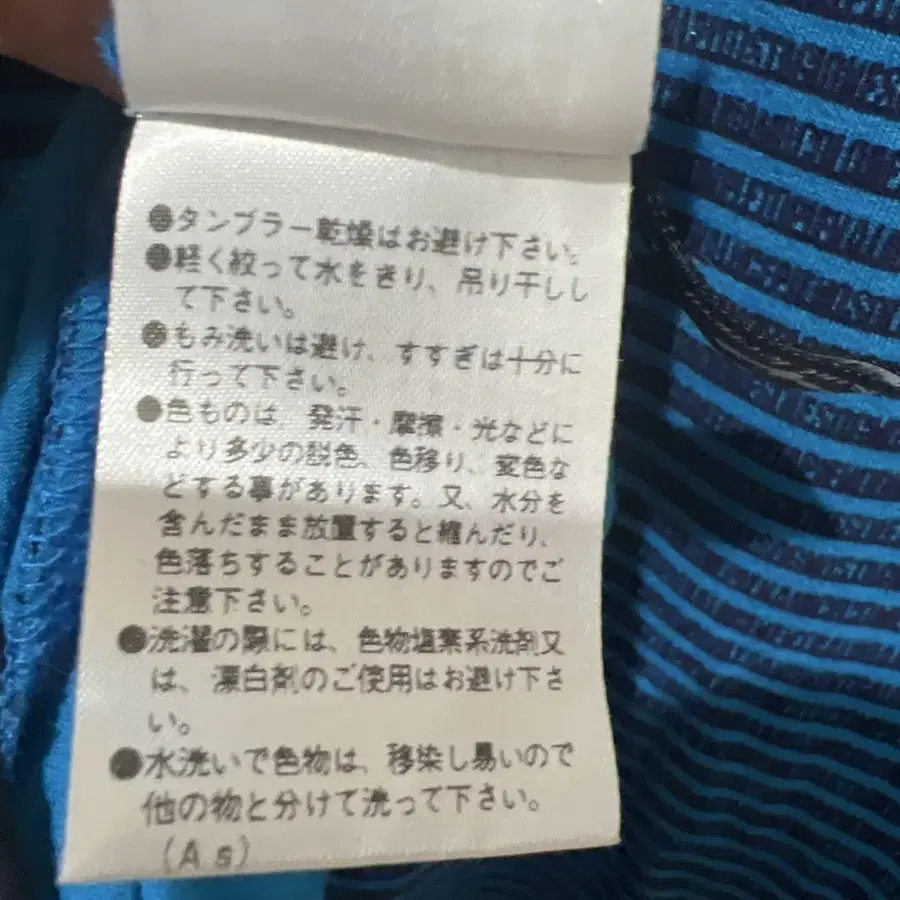 ●タンブラー乾燥はお避け下さい。
●軽く絞って水をきり、吊り干しし
て下さい。
●もみ洗いは避け、すすぎは十分に
行って下さい。
●色ものは、発汗・摩擦・光などに
より多少の脱色、色移り、変色な
どする事があります。又、水分を
含んだまま放置すると縮んだり、
色落ちすることがありますのでご
注意下さい。
●洗濯の際には、色物塩素系洗剤又
は、漂白剤のご使用はお避け下さ
い。
●水洗いで色物は、移染し易いので
他の物と分けて洗って下さい。
(As)